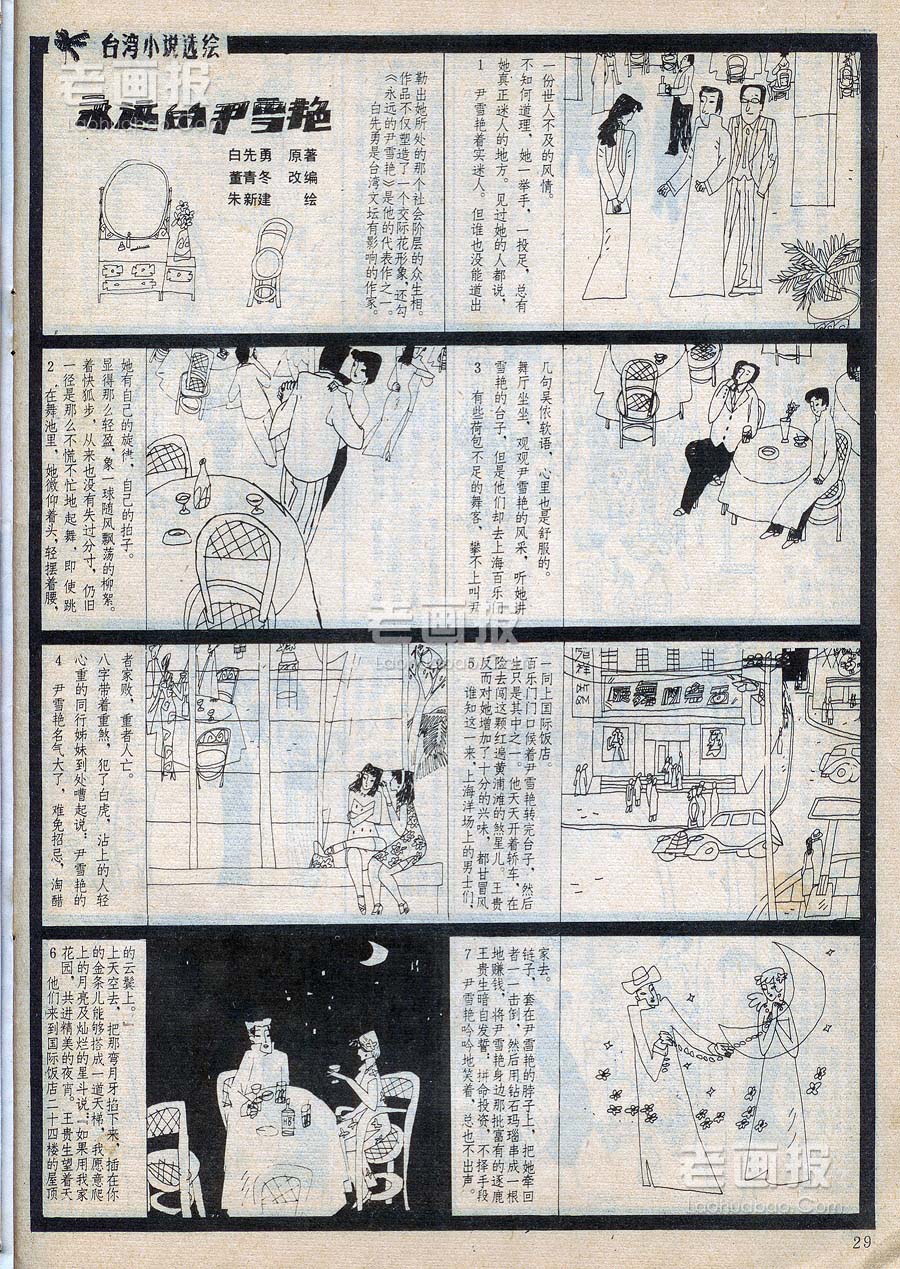 台湾小说选绘
永远的尹雪艳
白先勇 原著
董青冬 改编
朱新建 绘
白先勇是台湾文坛有影响的作家。
《永远的尹雪艳》是他的代表作之一。
作品不仅塑造了一个交际花形象，还勾
勒出她所处的那个社会阶层的众生相。
1 尹雪艳着实迷人。但谁也没能道出
她真正迷人的地方。见过她的人都说，
不知何道理，她一举手，一投足，总有
一份世人不及的风情。
2 在舞池里，她微仰着头，轻摆着腰，
一径是那么不慌不忙地起舞，即使跳
着快狐步，从来也没有失过分寸，仍旧
显得那么轻盈，象一球随风飘荡的柳絮。
她有自己的旋律，自己的拍子。
3 有些荷包不足的舞客，攀不上叫尹
雪艳的台子，但是他们却去上海百乐门
舞厅坐坐，观观尹雪艳的风采，听她讲
几句吴侬软语，心里也是舒服的。
4 尹雪艳名气大了，难免招忌，淘醋
心重的同行姊妹到处嘈起说：尹雪艳的
八字带着重煞，犯了白虎，沾上的人轻
者家败，重者人亡。
5 谁知这一来，上海洋场上的男士们，
反而对她增加了十分的兴味，都甘冒风
险去闯这颗红遍黄浦滩的煞星儿。王贵
生只是其中之一。他天天开着轿车，在
百乐门门口候着尹雪艳转完台子，然后
一同上国际饭店。
6 他们来到国际饭店二十四楼的屋顶
花园，共进精美的夜宵。王贵生望着天
上的月亮及灿烂的星斗说：“如果用我家
的金条儿能够搭成一道天梯，我愿意爬
上天空去，把那弯月牙掐下来，插在你
的云鬓上。”
7 尹雪艳吟吟地笑着，总也不出声。
王贵生暗自发誓：拼命投资，不择手段
地赚钱，将尹雪艳身边那批富有的逐鹿
者一一击倒，然后用钻石玛瑙串成一根
链子，套在尹雪艳的脖子上，把她牵回
家去。
29
老画报
老画报
老画报
Laohuabao.Com